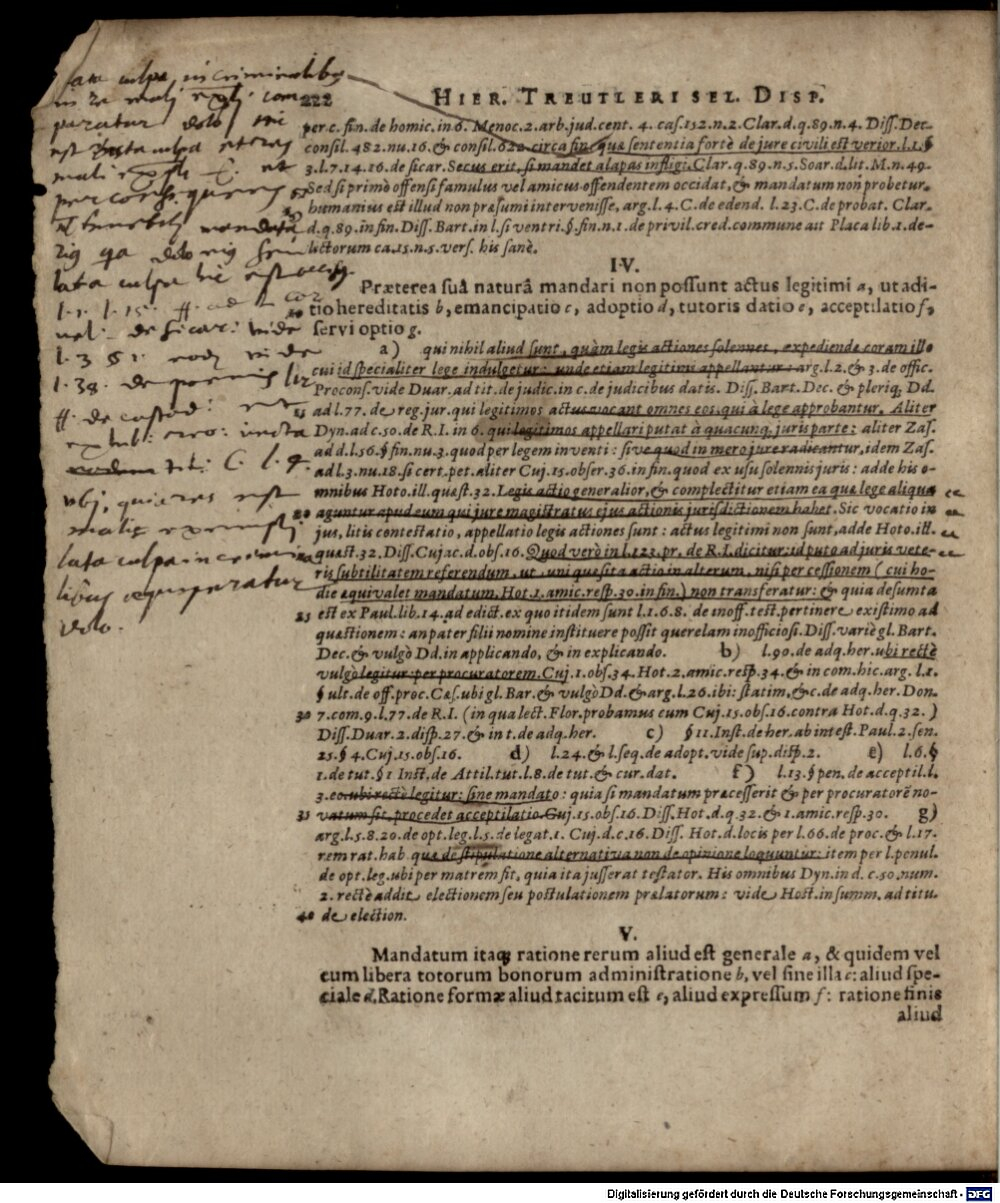 lata culpa in criminalibus
222 HIER. TREUTLERI SEL. DISP.
per c. fin. de homic. in 6. Menoc. 2. arb. jud. cent. 4. cas. 152. n. 2. Clar. d. q. 89. n. 4. Diss. Dec.
consil. 482. nu. 16. & consil. 622. circa fin. quæ sententia fortè de jure civili est verior. l. 1. §
3. l. 7. 14. 16. de sicar. Secus erit, si mandet alapas infligi. Clar. q. 89. n. 5. Soar. d. lit. M. n. 49.
Sed si primò offensi famulus vel amicus offendentem occidat, & mandatum non probetur,
humanius est illud non præsumi intervenisse, arg. l. 4. C. de edend. l. 23. C. de probat. Clar.
d. q. 89. in fin. Diss. Bart. in l. si ventri. §. fin. n. 1. de privil. cred. commune ait Placa lib. 1. de-
lictorum ca. 15. n. 5. vers. his sanè.
IV.
Præterea suâ naturâ mandari non possunt actus legitimi a, ut adi-
tio hereditatis b, emancipatio c, adoptio d, tutoris datio e, acceptilatio f,
servi optio g.
a) qui nihil aliud sunt, quàm legis actiones solennes, expediendæ coram illo
cui id specialiter lege indulgetur: unde etiam legitimi appellantur: arg. l. 2. & 3. de offic.
Procons. vide Duar. ad tit. de judic. in c. de judicibus datis. Diss. Bart. Dec. & pleriq; Dd.
15 ad l. 77. de reg. jur. qui legitimos actus vocant omnes eos, qui à lege approbantur. Aliter
Dyn. ad c. 50. de R. I. in 6. qui legitimos appellari putat à quacunq; juris parte: aliter Zas.
ad d. l. 56. § fin. nu. 3. quod per legem inventi: sive quod in mero jure radicantur, idem Zas.
ad l. 3. nu. 18. si cert. pet. aliter Cuj. 15. obser. 36. in fin. quod ex usu solennis juris: adde his o-
mnibus Hoto. ill. quæst. 32. Legis actio generalior, & complectitur etiam ea quæ lege aliqua
20 aguntur apud eum qui jure magistratus ejus actionis jurisdictionem habet. Sic vocatio in
jus, litis contestatio, appellatio legis actiones sunt: actus legitimi non sunt, adde Hoto. ill.
quæst. 32. Diss. Cujac. d. obs. 16. Quod verò in l. 123. pr. de R. I. dicitur: id puto ad juris vete-
ris subtilitatem referendum, ut, uni quæsita actio in alterum, nisi per cessionem ( cui ho-
die æquivalet mandatum. Hot. 1. amic. resp. 30. in fin. ) non transferatur: & quia desumta
25 est ex Paul. lib. 14. ad edict. ex quo itidem sunt l. 1. 6. 8. de inoff. test. pertinere existimo ad
quæstionem: an pater filii nomine instituere possit querelam inofficiosi. Diss. variè gl. Bart.
Dec. & vulgò Dd. in applicando, & in explicando. b) l. 90. de adq. her. ubi rectè
vulgò legitur: per procuratorem. Cuj. 1. obs. 34. Hot. 2. amic. resp. 34. & in com. hic. arg. l. 1.
§ ult. de off. proc. Cæs. ubi gl. Bar. & vulgò Dd. & arg. l. 26. ibi: statim, & c. de adq. her. Don.
30 7. com. 9. l. 77. de R. I. ( in qua lect. Flor. probamus cum Cuj. 15. obs. 16. contra Hot. d. q. 32. )
Diss. Duar. 2. disp. 27. & in t. de adq. her. c) § 11. Inst. de her. ab intest. Paul. 2. sen.
25. § 4. Cuj. 15. obs. 16. d) l. 24. & l. seq. de adopt. vide sup. disp. 2. e) l. 6. §
1. de tut. § 1 Inst. de Attil. tut. l. 8. de tut. & cur. dat. f) l. 13. § pen. de acceptil. l.
3. eo. ubi rectè legitur: sine mandato: quia si mandatum præcesserit & per procuratorē no-
35 vatum sit, procedet acceptilatio. Cuj. 15. obs. 16. Diss. Hot. d. q. 32. & 1. amic. resp. 30. g)
arg. l. 5. 8. 20. de opt. leg. l. 5. de legat. 1. Cuj. d. c. 16. Diss. Hot. d. locis per l. 66. de proc. & l. 17.
rem rat. hab. quæ de stipulatione alternativa non de opinione loquuntur: item per l. penul.
de opt. leg. ubi per matrem fit, quia ita jusserat testator. His omnibus Dyn. in d. c. 50. num.
2. rectè addit, electionem seu postulationem prælatorum: vide Host. in summ. ad titu.
40 de election.
V.
Mandatum itaq; ratione rerum aliud est generale a, & quidem vel
cum libera totorum bonorum administratione b, vel sine illa c: aliud spe-
ciale d. Ratione formæ aliud tacitum est e, aliud expressum f: ratione finis
aliud
lata culpa in crimina
libus æquiparatur
dolo.
Digitalisierung gefördert durch die Deutsche Forschungsgemeinschaft - DFG